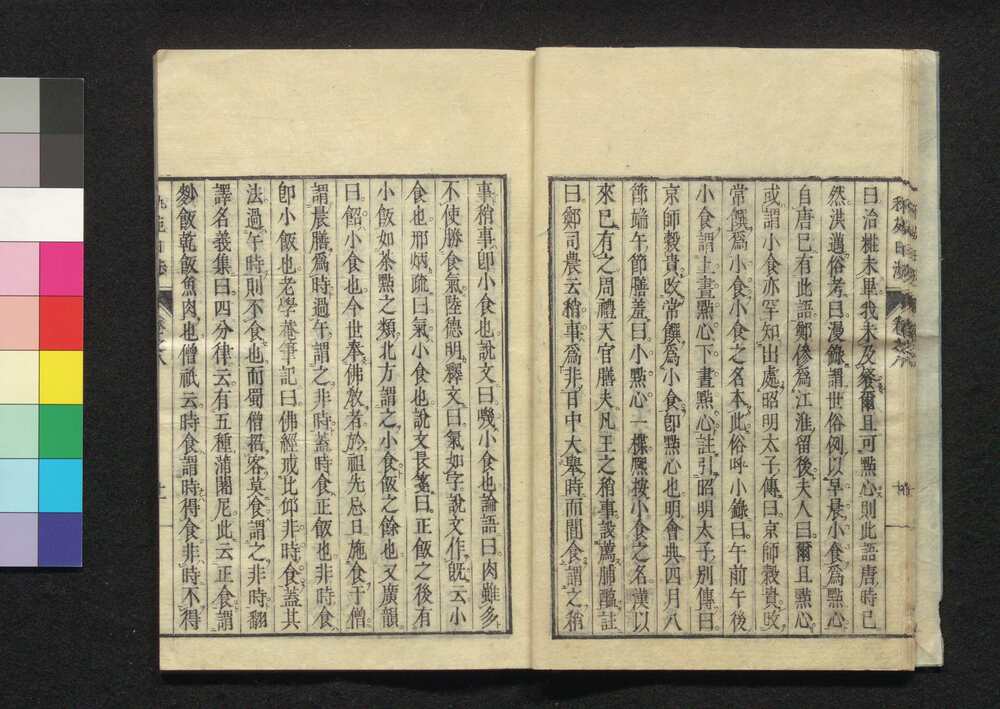 曰治粧未畢我未及餐爾且可點心則此語唐時已
然洪邁俗考曰漫錄謂世俗例以早晨小食爲點心
自唐已有此語鄭傪爲江淮留後夫人曰爾且點心
或謂小食亦罕知出處昭明太子傳曰京師穀貴改
常饌爲小食小食之名本此俗呼小錄曰午前午後
小食謂上晝點心下晝點心註引昭明太子別傳曰
京師穀貴改常饌爲小食卽點心也明會典四月八
節端午節膳羞曰小點心一楪𤋎按小食之名漢以
來已有之周禮天官膳夫凡王之稍事設薦脯醢註
曰鄭司農云稍事爲非日中大舉時而間食謂之稍
事稍事卽小食也說文曰嘰小食也論語曰肉雖多
不使勝食氣陸德明釋文曰氣如字說文作旣云小
食也邢昺疏曰氣小食也說文長箋曰正飯之後有
小飯如茶點之類北方謂之小食飯之餘也又廣韻
曰䬰小食也今世奉佛敎者於祖先忌日施食于僧
謂晨膳爲時過午謂之非時蓋時食正飯也非時食
卽小飯也老學菴筆記曰佛經戒比邱非時食蓋其
法過午時則不食也而蜀僧招客莫食謂之非時翻
譯名義集曰四分律云有五種蒲闍尼此云正食謂
麨飯乾飯魚肉也僧祇云時食謂時得食非時不得